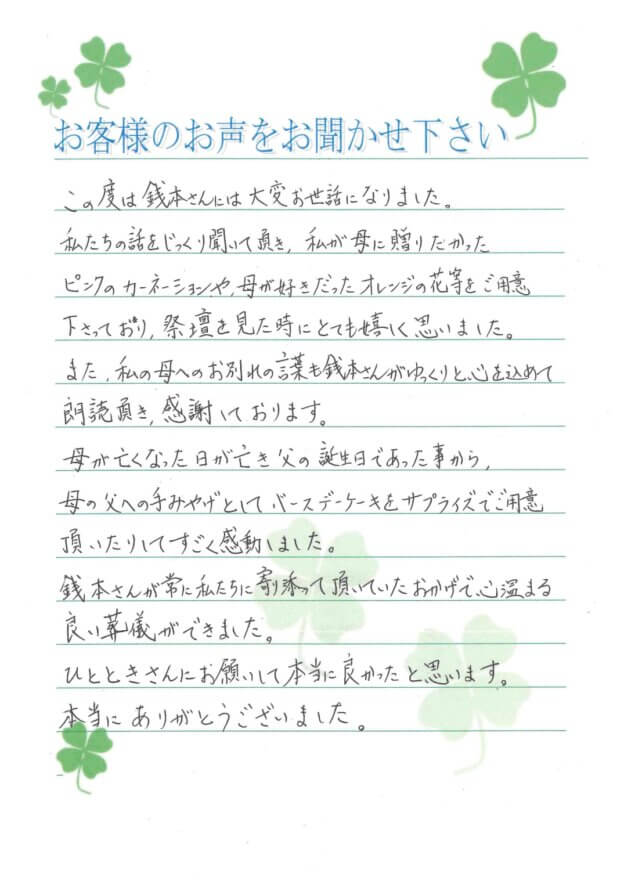 お客様のお声をお聞かせ下さい
この度は銭本さんには大変お世話になりました。
私たちの話をじっくり聞いて頂き、私が母に贈りたかった
ピンクのカーネーションや、母が好きだったオレンジの花等をご用意
下さっており、祭壇を見た時にとても嬉しく思いました。
また、私の母へのお別れの言葉も銭本さんがゆっくりと、心を込めて
朗読頂き、感謝しております。
母が亡くなった日が亡き父の誕生日であった事から、
母の父への手みやげとしてバースデーケーキをサプライズでご用意
頂いたりしてすごく感動しました。
銭本さんが常に私たちに寄り添って頂いていたおかげで、心温まる
良い葬儀ができました。
ひとときさんにお願いして本当に良かったと思います。
本当にありがとうございました。